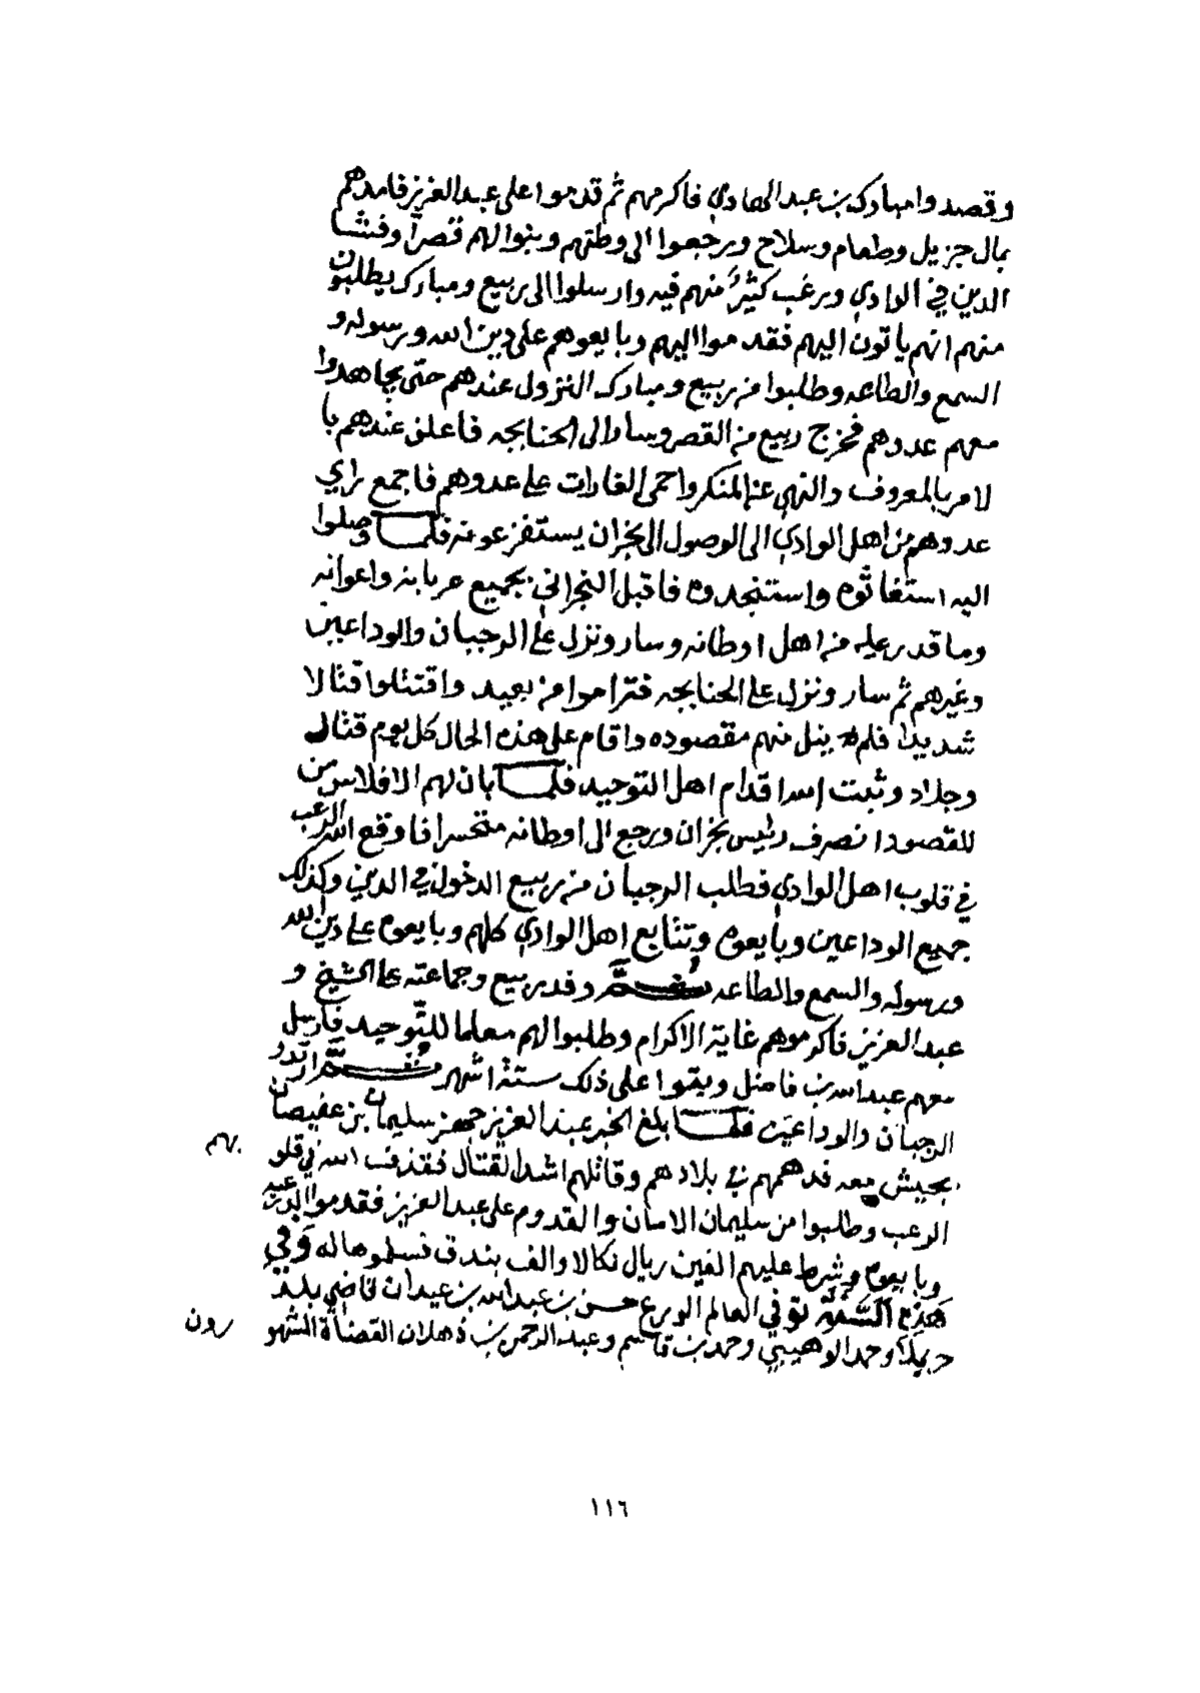 وقصدوا مبارك بن عبد الهادي فاكرمهم ثم قدموا على عبد العزيز فامدهم
بمال جزيل وطعام وسلاح ورجعوا الى وطنهم وبنوا لهم قصراً وفشا
الدين في الوادي ورغب كثيرٌ منهم فيه وارسلوا الى ربيع ومبارك يطلبون
منهم انهم ياتون اليهم فقدموا اليهم وبايعوهم على دين الله ورسوله و
السمع والطاعه وطلبوا من ربيع ومبارك النزول عندهم حتى يجاهدوا
معهم عدوهم فخرج ربيع من القصر وسار الى الحنابجه فاعلن عندهم با
لامر بالمعروف والنهي عن المنكر واحمى الغارات على عدوهم فاجمع راي
عدوهم من اهل الوادي الى الوصول الى نجران يستفزعونه فلما وصلوا
اليه استغاثوه واستنجدوه فاقبل النجراني بجميع عربانه واعوانه
وما قدر عليه من اهل اوطانه وسار ونزل على الرجبان والوداعين
وغيرهم ثم سار ونزل على الحنابجه فتراموا من بعيد واقتتلوا قتالا
شديدا فلم ينل منهم مقصوده واقام على هذه الحال كل يوم قتال
وجلاد وثبت الله اقدام اهل التوحيد فلما بان لهم الافلاس من
المقصود انصرف رئيس نجران ورجع الى اوطانه متحسرا فاوقع الله الرعب
في قلوب اهل الوادي فطلب الرجبان من ربيع الدخول في الدين وكذلك
جميع الوداعين وبايعوه وتتابع اهل الوادي كلهم وبايعوه على دين الله
ورسوله والسمع والطاعه ثم وفد ربيع وجماعته على الشيخ و
عبد العزيز فاكرموهم غاية الاكرام وطلبوا لهم معلما للتوحيد فارسل
معهم عبد الله بن فاضل وبقوا على ذلك ستة اشهر ثم ارتدو
الرجبان والوداعين فلما بلغ الخبر عبد العزيز جهز سليمان بن عفيصان
بجيش معه فدهمهم في بلادهم وقاتلهم اشد القتال فقذف الله في قلو
بهم
الرعب وطلبوا من سليمان الامان والقدوم على عبد العزيز فقدموا الدرعيه
وبايعوه وشرط عليهم الفين ريال نكالا والف بندق فسلموها له وفي
هذه السنة توفي العالم الورع حسن بن عبد الله بن عيدان قاضي بلد
حريملا وحمد الوهيبي وحمد بن قاسم وعبد الرحمن بن ذهلان القضاة المشهو
رون
١١٦